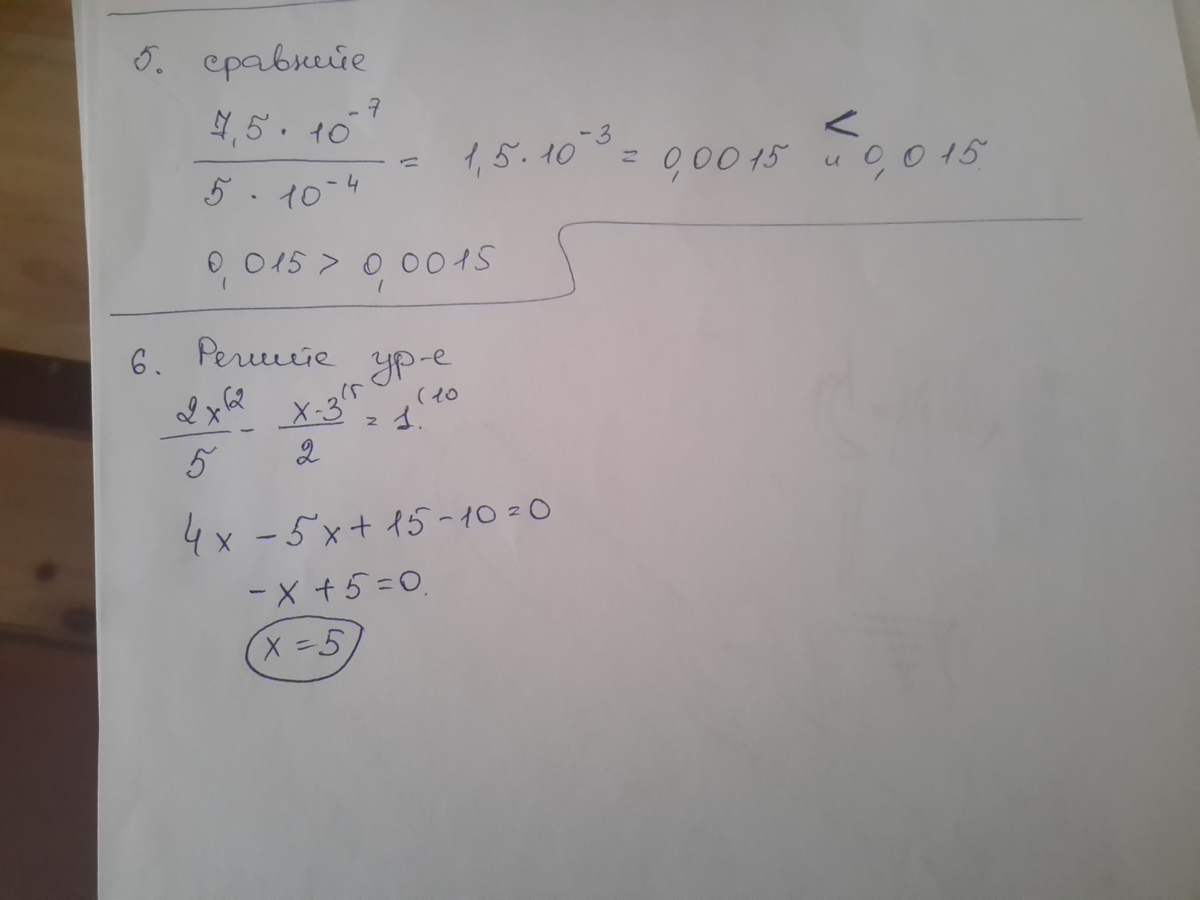 5. сравните
7,5 · 10⁻⁷ / 5 · 10⁻⁴ = 1,5 · 10⁻³ = 0,0015 < и 0,015.
0,015 > 0,0015
6. Решите ур-е
2x⁽² / 5 - x-3⁽⁵ / 2 = 1.⁽¹⁰
4x - 5x + 15 - 10 = 0
-x + 5 = 0.
x = 5